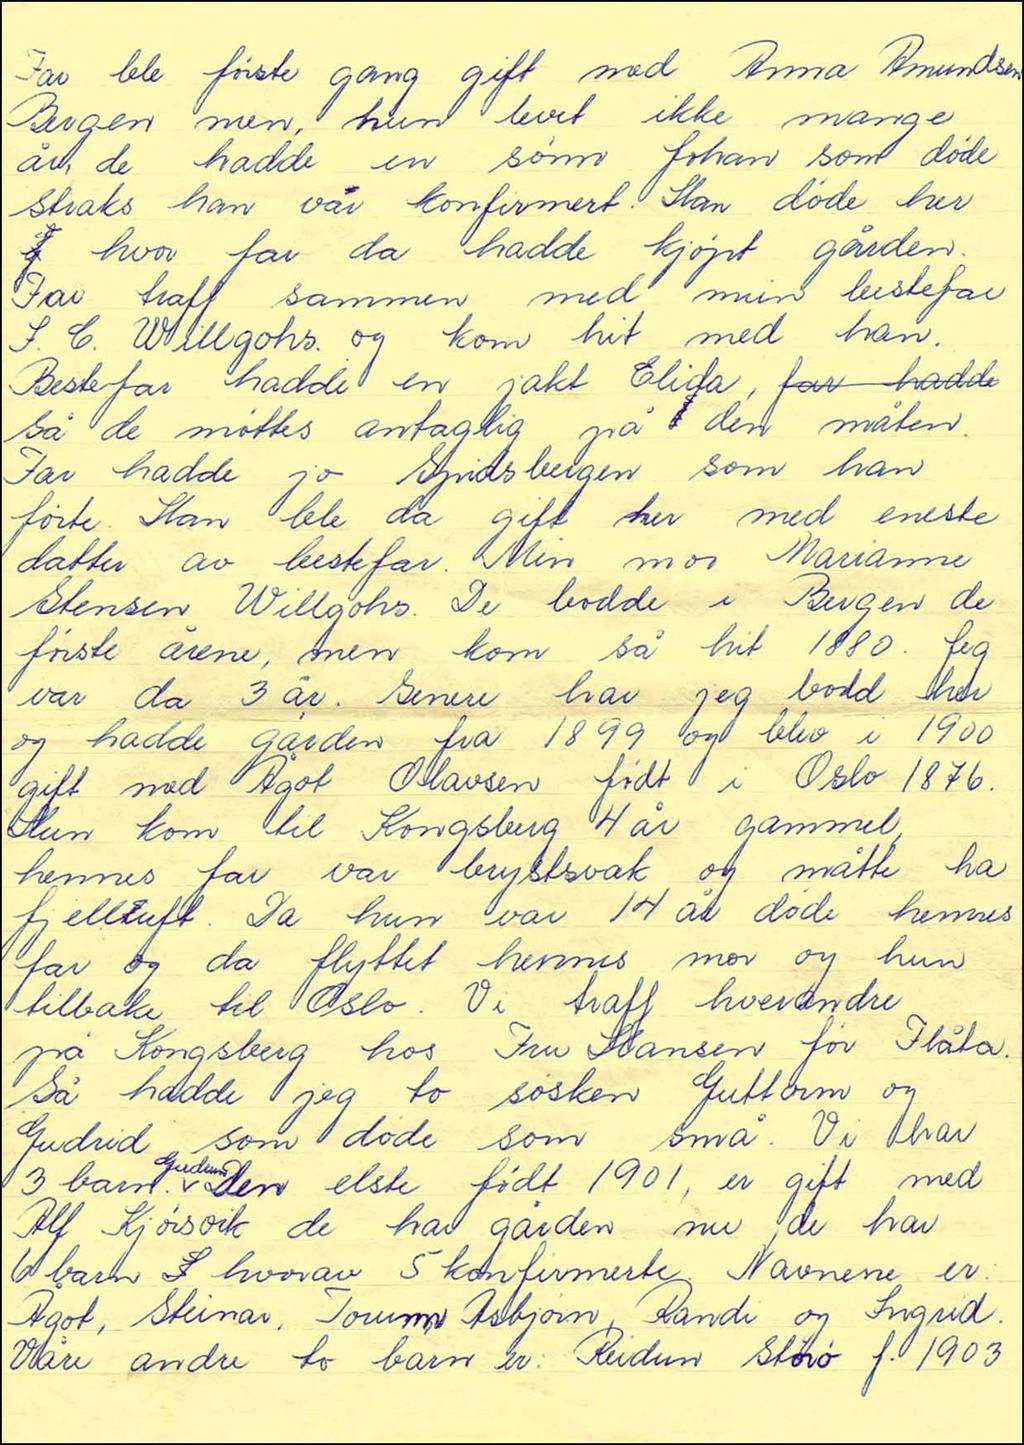 Far ble første gang gift med Anna Amundsen
Bergen men, hun levet ikke mange
år, de hadde en sønn Johan som døde
straks han var konfirmert. Han døde her
hvor far da hadde kjøpt gården.
Far traff sammen med min bestefar
J. C. Willgohs. og kom hit med han.
Bestefar hadde en jakt Elida, far hadde
så de møttes antaglig på den måten.
Far hadde jo Spidsbergen som han
førte. Han ble da gift her med eneste
datter av bestefar. Min mor Marianne
Stensen Willgohs. De bodde i Bergen de
første årene, men kom så hit 1880. Jeg
var da 3 år. Senere har jeg bodd her
og hadde gården fra 1899 og blev i 1900
gift med Ågot Olavsen født i Oslo 1876.
Hun kom til Kongsberg 4 år gammel,
hennes far var brystsvak og måtte ha
fjelluft. Da hun var 14 år døde hennes
far og da flyttet hennes mor og hun
tilbake til Oslo. Vi traff hverandre
på Kongsberg hos Fru Hansen for Flåta.
Så hadde jeg to søsken Guttorm og
Gudrid som døde som små. Vi har
3 barn. Gudrun Den elste født 1901, er gift med
Alf Kjørsvik de har gården nu de har
6 barn hvorav 5 konfirmerte. Navnene er:
Ågot, Steinar, Torunn, Asbjørn, Randi og Ingrid.
Våre andre to barn er: Reidun Storø f. 1903